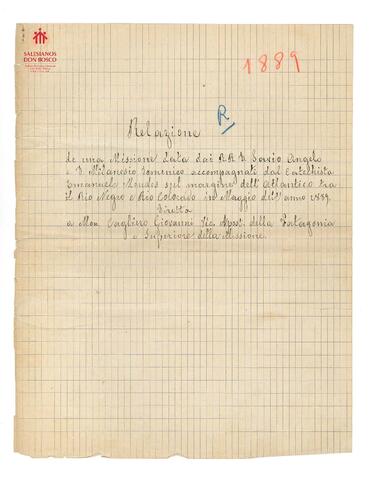 SALESIANOS
DON BOSCO
1889
R
Relazione
de una Missione data dai R.R. D. Savio Angelo
e D. Milanesio Domenico accompagnati dal Catechista
Emanuele Mendes sul margine dell'Atlantico tra
il Rio Negro e Rio Colorado in Maggio dell'anno 1889.
Diretta
a Mon. Cagliero Giovanni Vic. Apost. della Patagonia
e Superiore della Missione.